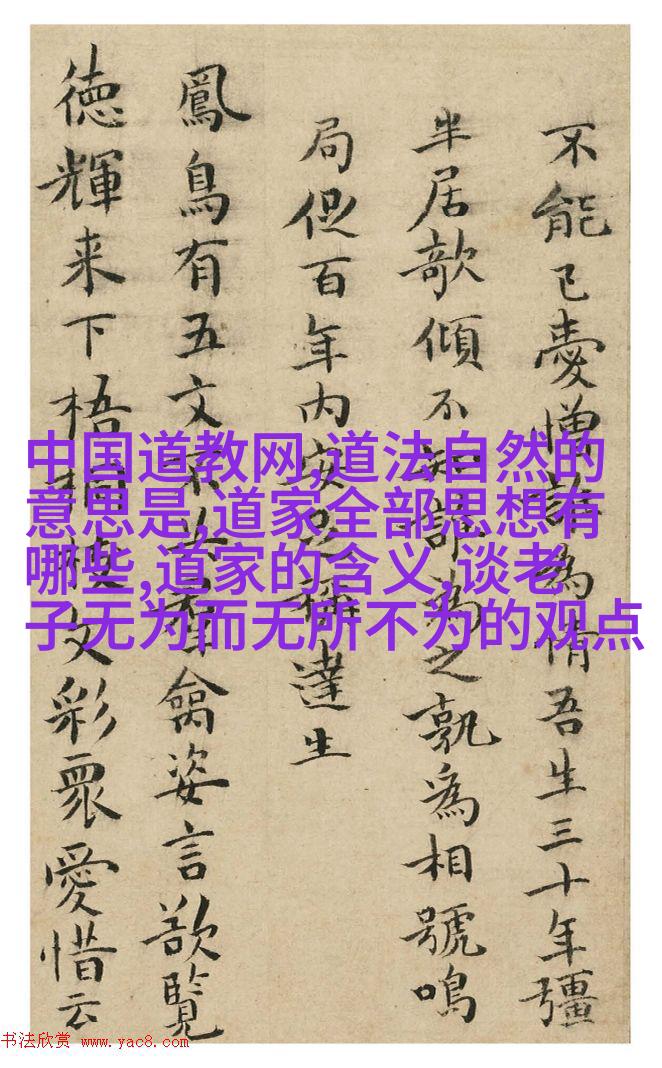 不能已憂憎為情吾生三十年彊
半居欹傾不知謂為之孰為相號鳴
局促百年内安足稱達生
鳳鳥有五文不共群禽姿言欲覽
徳輝来下梧桐棲文彩眾愛惜云
中国道教网,道法自然的
意思是,道家全部思想有
哪些,道家的含义,谈老
子无为而无所不为的观点
书法欣赏 www.yac8.com